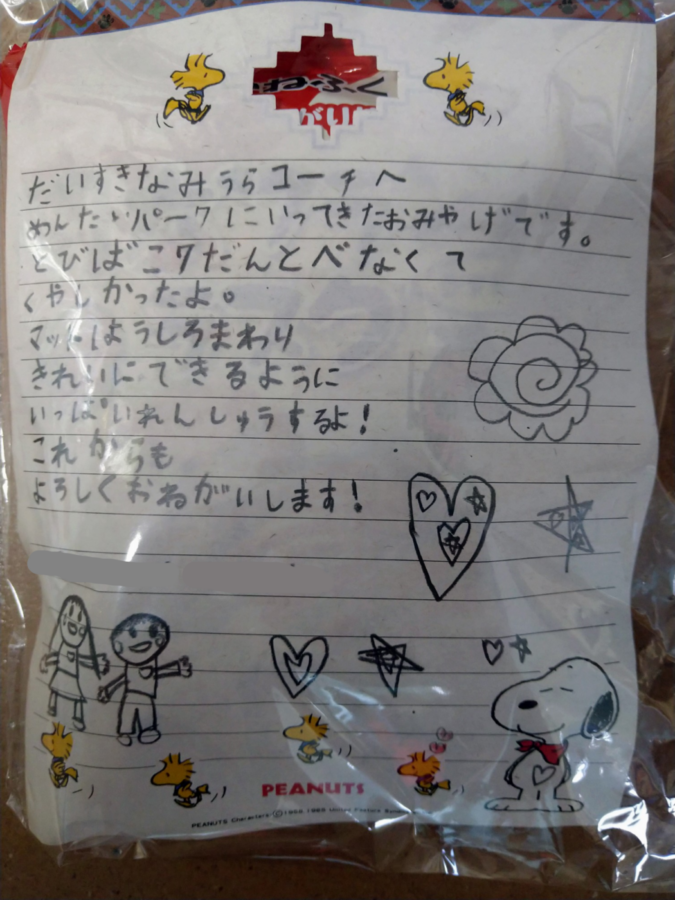 ねふく
がい
だいすきなみうらコーチへ
めんたいパークにいってきたおみやげです。
とびばこ7だんとべなくて
くやしかったよ。
マットはようしろまわり
きれいにできるように
いっぱいれんしゅうするよ!
これからも
よろしくおねがいします!
PEANUTS
PEANUTS Characters © 1958, 1965 United Feature